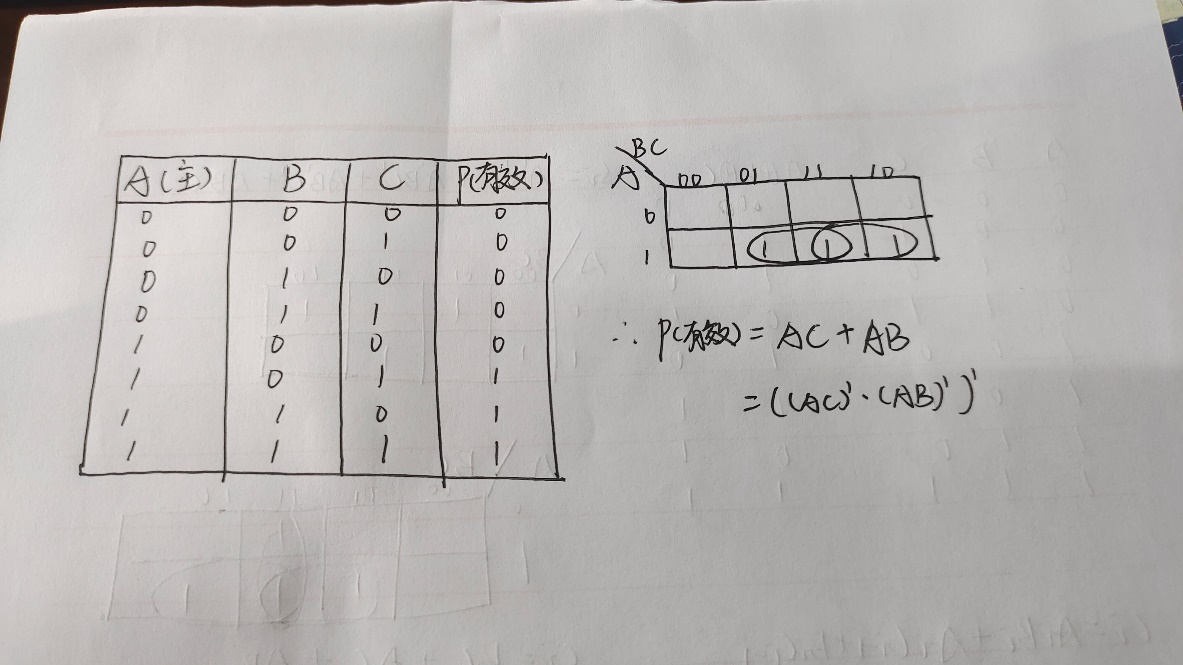 A(主) B C P(有效)
0 0 0 0
0 0 1 0
0 1 0 0
0 1 1 0
1 0 0 0
1 0 1 1
1 1 0 1
1 1 1 1
BC
A 00 01 11 10
0
1 1 1 1
∴ P(有效) = AC + AB
= ((AC)'·(AB)')'